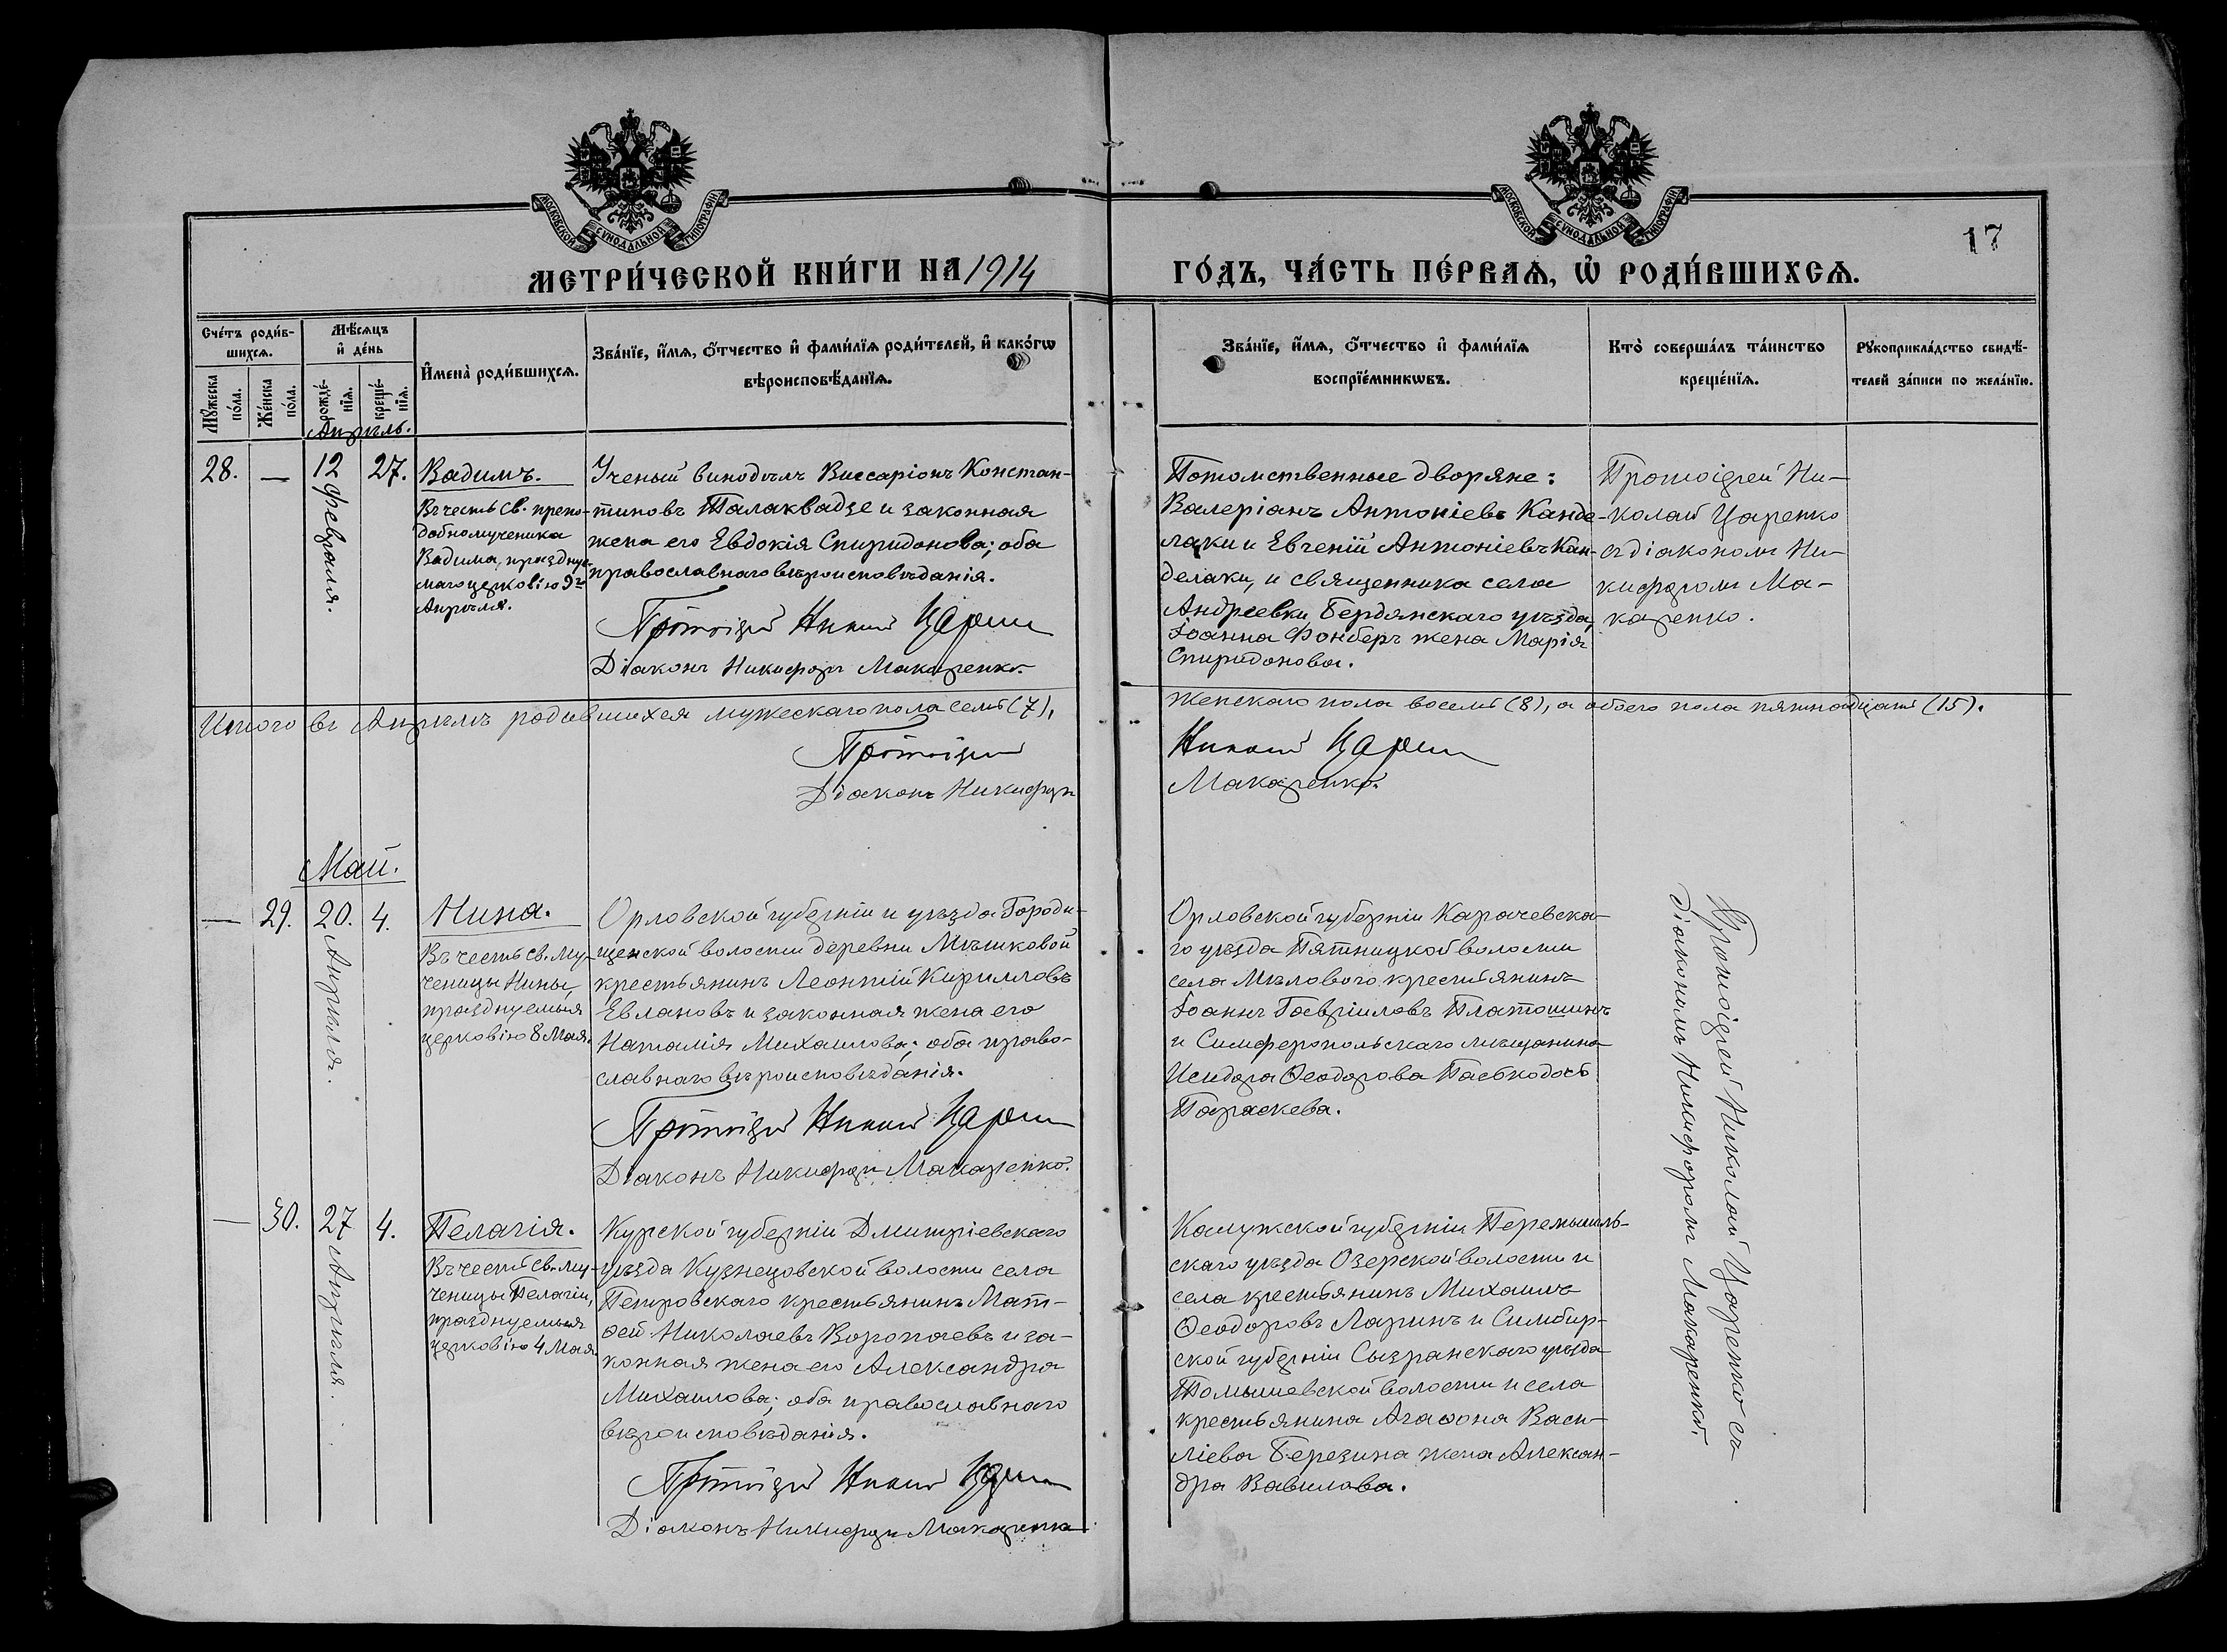 МОСКОВСКОЙ СѴНОДАЛЬНОЙ ТИПОГРАФІИ
МОСКОВСКОЙ СѴНОДАЛЬНОЙ ТИПОГРАФІИ
17
МЕТРИ́ЧЕСКОЙ КНИ́ГИ НА 1914
ГО́ДЪ, ЧА́СТЬ ПЕ́РВАѦ, Ѡ҆ РОДИ́ВШИХСѦ.
Сче́тъ роди́в-
шихсѧ.
Мꙋ́жеска по́ла.
Же́нска по́ла.
Мѣ́сѧцъ
и҆ де́нь
рожде́-
нїѧ.
креще́-
нїѧ.
И҆мена̀ роди́вшихсѧ.
Зва́нїе, и҆́мѧ, ѻ҆́тчество и҆ фами́лїѧ роди́телей, и҆ како́гѡ
вѣроисповѣ́данїѧ.
Зва́нїе, и҆́мѧ, ѻ҆́тчество и҆ фами́лїѧ
воспрїе́мникѡвъ.
Кто̀ соверша́лъ та́инство
креще́нїѧ.
Рꙋкоприкла́дство свидѣ́-
телей за́писи по жела́нїю.
Апрѣль.
28.
—
12
Февраля.
27.
Вадимъ.
Въ честь св. препо-
добномученика
Вадима, праздну-
маго церковію 9го
Апрѣля.
Ученый винодѣлъ Виссаріонъ Констан-
тиновъ Талаквадзе и законная
жена его Евдокія Спиридонова; оба
православнаго вѣроисповѣданія.
Протоіерей Николай Царенко
Діаконъ Никифоръ Макаренко.
Потомственные дворяне:
Валеріанъ Антоніевъ Канде-
лаки и Евгеній Антоніевъ Кан-
делаки, и священника села
Андреевки, Бердянскаго уѣзда,
Іоанна Фонберъ жена Марія
Спиридонова.
Протоіерей Ни-
колай Царенко
съ діакономъ Ни-
кифоромъ Ма-
каренко.
Итого въ Апрѣлѣ родившихся мужескаго пола семь (7),
женскаго пола восемь (8), а обоего пола пятнадцать (15).
Протоіерей
Николай Царенко
Діаконъ Никифоръ
Макаренко.
Май.
—
29.
20.
Апрѣля.
4.
Нина.
Въ честь св. му-
ченицы Нины,
празднуемыя
церковію 8 Мая.
Орловской губерніи и уѣзда Городи-
щенской волости деревни Мѣшковой
крестьянинъ Леонтій Кирилловъ
Евлановъ и законная жена его
Наталія Михаилова; оба право-
славнаго вѣроисповѣданія.
Протоіерей Николай Царенко
Діаконъ Никифоръ Макаренко.
Орловской губерніи Карачевска-
го уѣзда Пятницкой волости
села Мѣловаго крестьянинъ
Іоаннъ Гавріиловъ Платошинъ
и Симферопольскаго мѣщанина
Исидора Ѳеодорова
Параскева.
Протоіерей Николай Царенко съ
діакономъ Никифоромъ Макаренко.
—
30.
27
Апрѣля.
4.
Пелагія.
Въ честь св. му-
ченицы Пелагіи,
празднуемыя
церковію 4 Мая.
Курской губерніи Дмитріевскаго
уѣзда Кузнецовской волости села
Петровскаго крестьянинъ Мат-
ѳей Николаевъ Воропаевъ и за-
конная жена его Александра
Михаилова; оба православнаго
вѣроисповѣданія.
Протоіерей Николай Царенко
Діаконъ Никифоръ Макаренко
Калужской губерніи Перемышль-
скаго уѣзда Озерской волости и
села крестьянинъ Михаилъ
Ѳеодоровъ Ларинъ и Симбир-
ской губерніи Сызранскаго уѣзда
Томышевской волости и села
крестьянина Агаѳона Васи-
ліева Березина жена Алексан-
дра Вавилова.